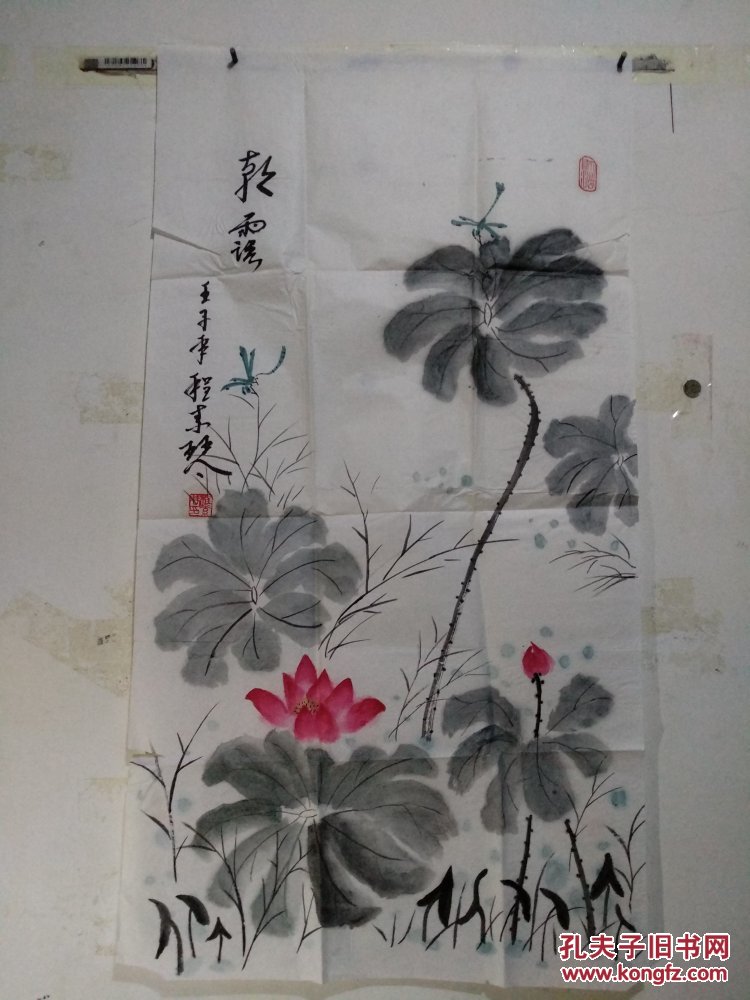 朝露
壬子年 程素琴
孔夫子旧书网
www.kongfz.com